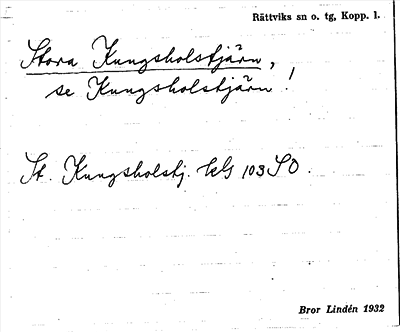 Rättviks sn o. tg, Kopp. l.
Stora Kungsholstjärn,
se Kungsholstjärn!
St. Kungsholstj. kbl 103 SO.
Bror Lindén 1932